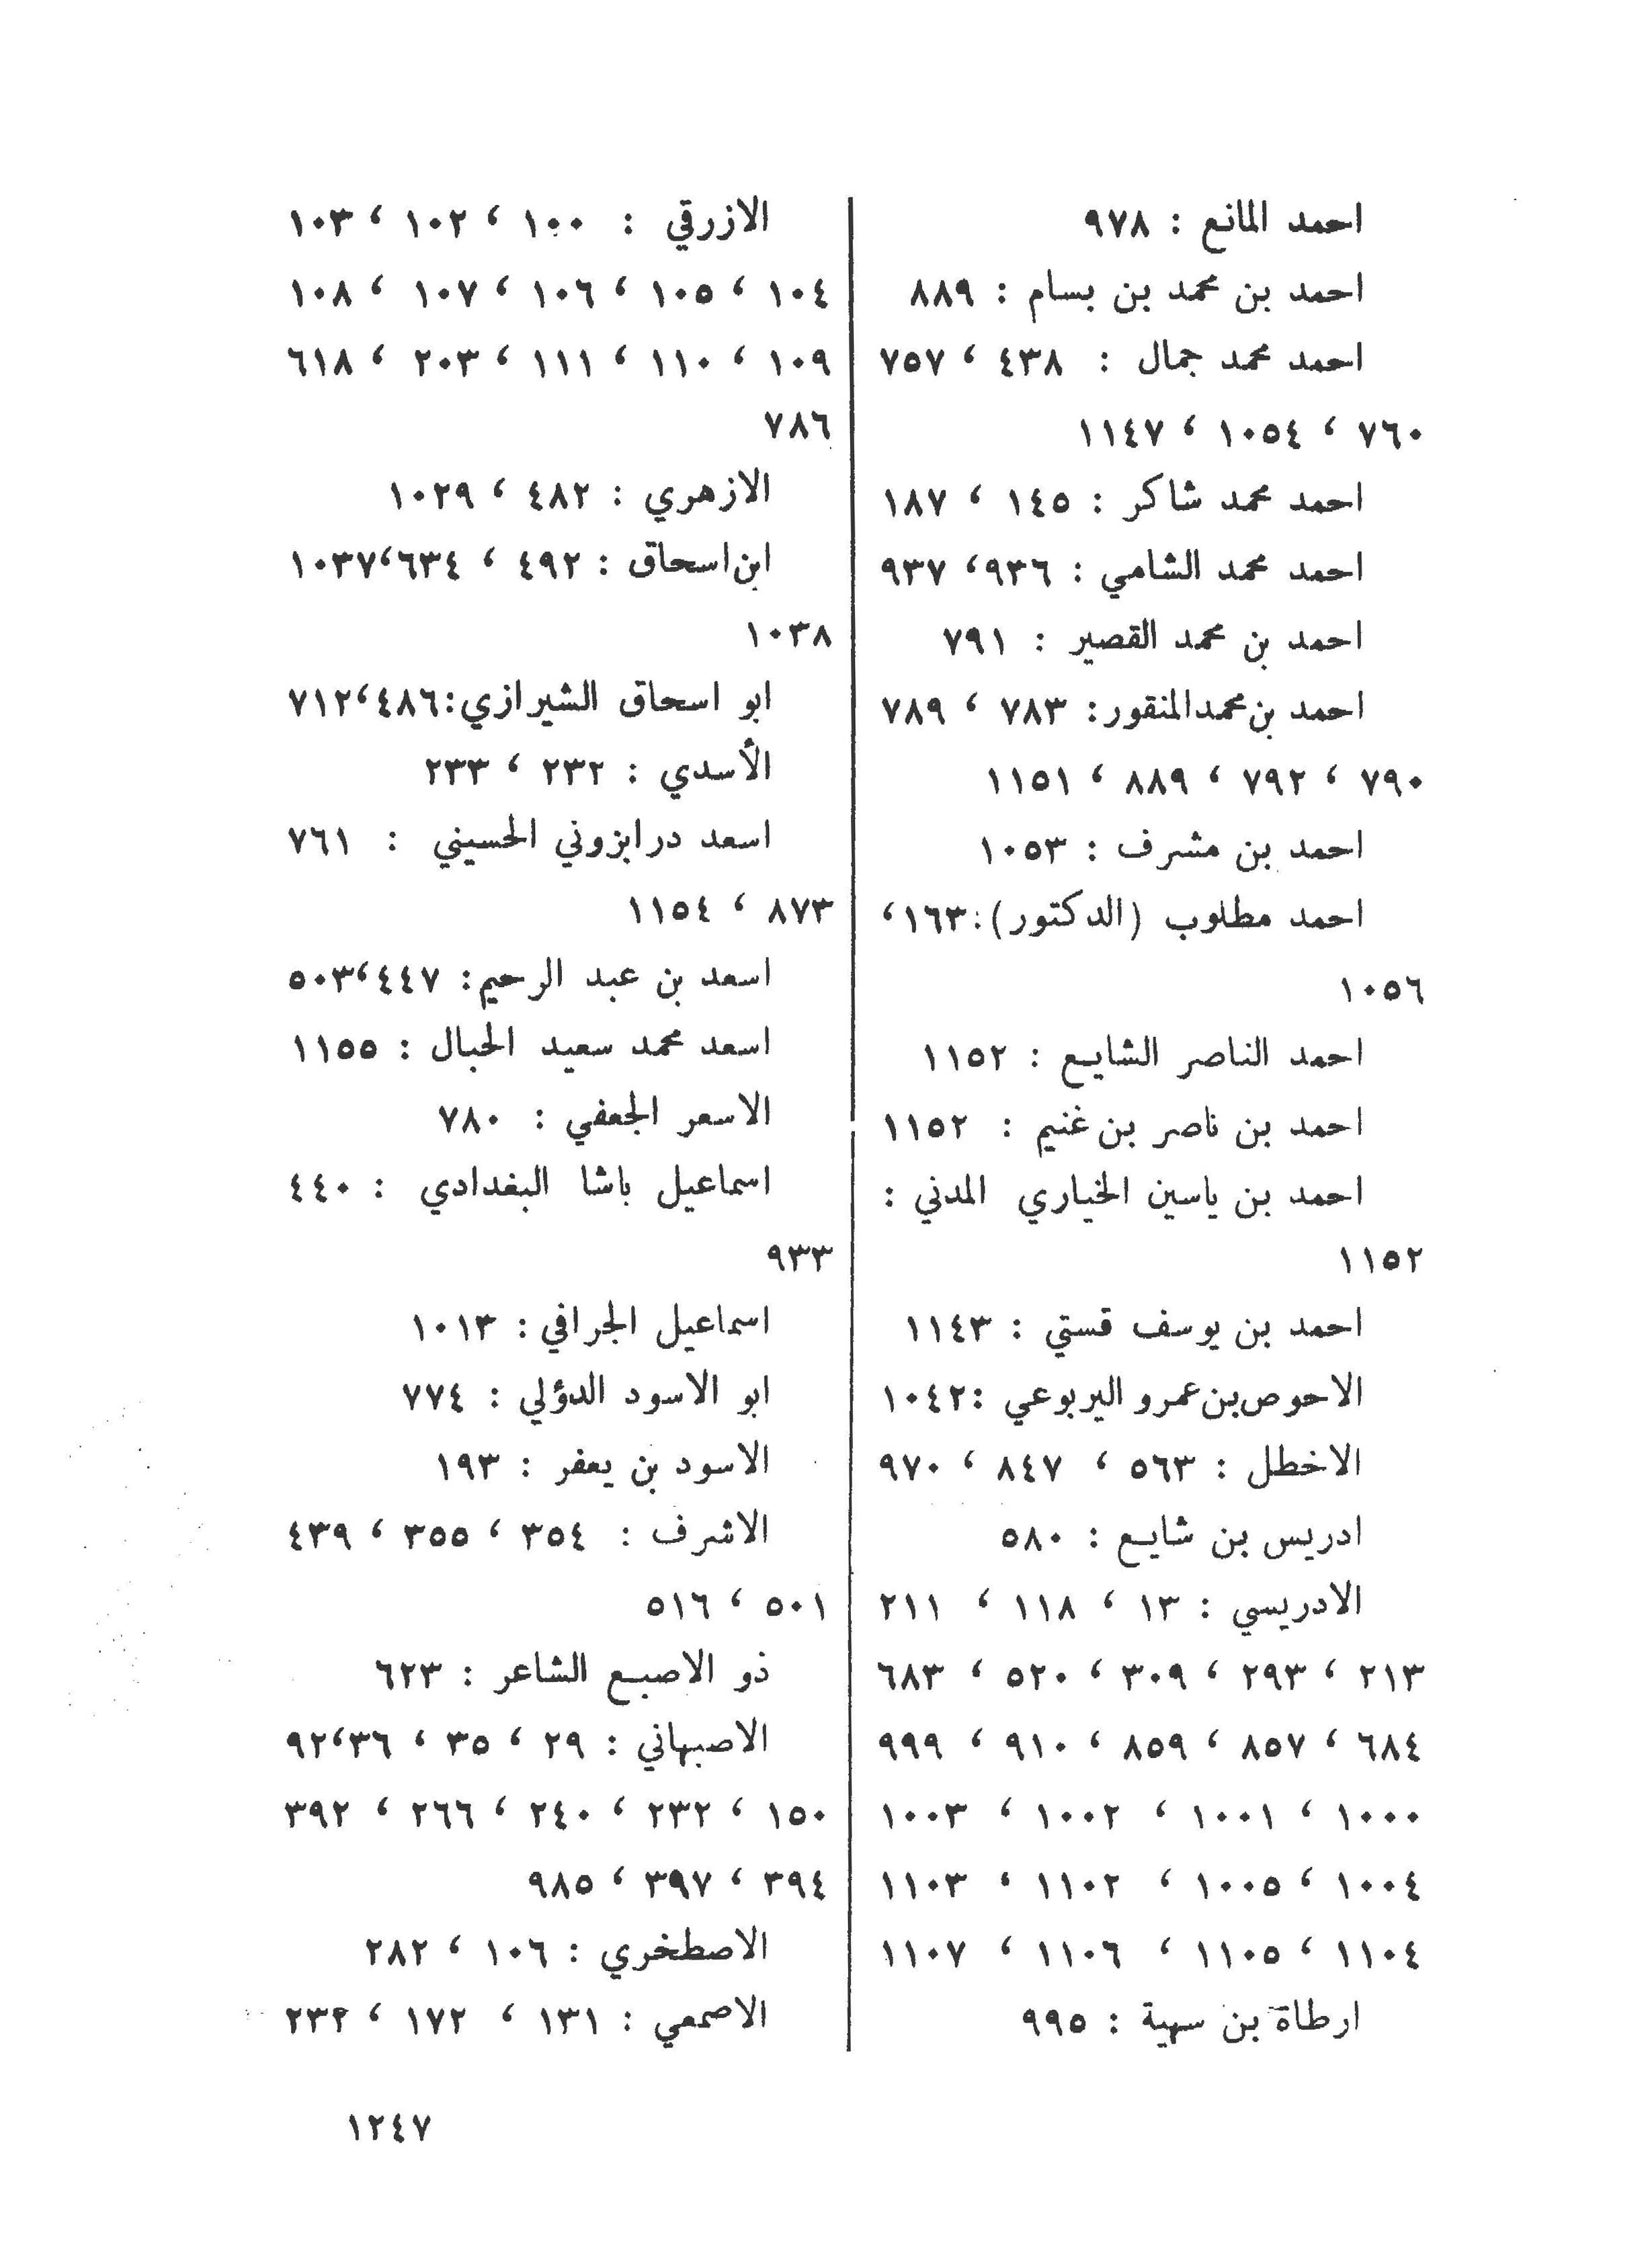 احمد المانع : ٩٧٨
احمد بن محمد بن بسام : ٨٨٩
احمد محمد جمال : ٤٣٨ ، ٧٥٧
٧٦٠ ، ١٠٥٤ ، ١١٤٧
احمد محمد شاكر : ١٤٥ ، ١٨٧
احمد محمد الشامي : ٩٣٦ ، ٩٣٧
احمد بن محمد القصير : ٧٩١
احمد بن محمد المنقور : ٧٨٣ ، ٧٨٩
٧٩٠ ، ٧٩٢ ، ٨٨٩ ، ١١٥١
احمد بن مشرف : ١٠٥٣
احمد مطلوب (الدكتور) : ١٦٣ ،
١٠٥٦
احمد الناصر الشايع : ١١٥٢
احمد بن ناصر بن غنيم : ١١٥٢
احمد بن ياسين الخياري المدني :
١١٥٢
احمد بن يوسف قستي : ١١٤٣
الاحوص بن عمرو اليربوعي : ١٠٤٢
الاخطل : ٥٦٣ ، ٨٤٧ ، ٩٧٠
ادريس بن شايع : ٥٨٠
الادريسي : ١٣ ، ١١٨ ، ٢١١
٢١٣ ، ٢٩٣ ، ٣٠٩ ، ٥٢٠ ، ٦٨٣
٦٨٤ ، ٨٥٧ ، ٨٥٩ ، ٩١٠ ، ٩٩٩
١٠٠٠ ، ١٠٠١ ، ١٠٠٢ ، ١٠٠٣
١٠٠٤ ، ١٠٠٥ ، ١١٠٢ ، ١١٠٣
١١٠٤ ، ١١٠٥ ، ١١٠٦ ، ١١٠٧
ارطاة بن سهية : ٩٩٥
الازرقي : ١٠٠ ، ١٠٢ ، ١٠٣
١٠٤ ، ١٠٥ ، ١٠٦ ، ١٠٧ ، ١٠٨
١٠٩ ، ١١٠ ، ١١١ ، ٢٠٣ ، ٦١٨
٧٨٦
الازهري : ٤٨٢ ، ١٠٢٩
ابن اسحاق : ٤٩٢ ، ٦٣٤ ، ١٠٣٧
١٠٣٨
ابو اسحاق الشيرازي : ٤٨٦ ، ٧١٢
الأسدي : ٢٣٢ ، ٢٣٣
اسعد درابزوني الحسيني : ٧٦١
٨٧٣ ، ١١٥٤
اسعد بن عبد الرحيم : ٤٤٧ ، ٥٠٣
اسعد محمد سعيد الحبال : ١١٥٥
الاسعر الجعفي : ٧٨٠
اسماعيل باشا البغدادي : ٤٤٠
٩٣٣
اسماعيل الجرافي : ١٠١٣
ابو الاسود الدؤلي : ٧٧٤
الاسود بن يعفر : ١٩٣
الاشرف : ٣٥٤ ، ٣٥٥ ، ٤٣٩
٥٠١ ، ٥١٦
ذو الاصبع الشاعر : ٦٢٣
الاصبهاني : ٢٩ ، ٣٥ ، ٣٦ ، ٩٢
١٥٠ ، ٢٣٢ ، ٢٤٠ ، ٢٦٦ ، ٣٩٢
٣٩٤ ، ٣٩٧ ، ٩٨٥
الاصطخري : ١٠٦ ، ٢٨٢
الاصمعي : ١٣١ ، ١٧٢ ، ٢٣٢
١٢٤٧